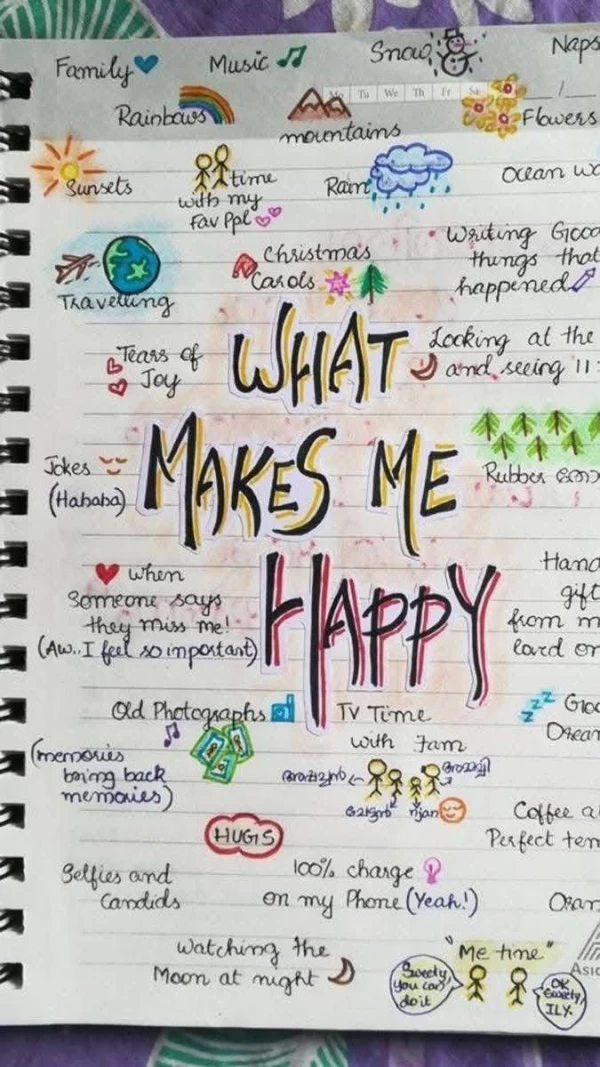 Family
Music
Snow
Naps
Mo Tu We Th Fr Sa
Rainbows
mountains
Flowers
Sunsets
time
with my
Fav Ppl
Rain
ocean
Christmas
Carols
Writing Good
things that
happened
Travelling
Tears of
Joy
WHAT
MAKES ME
HAPPY
Looking at the
and seeing 11:
Jokes
(Hahaha)
Rubber തോ
when
Someone says
they miss me!
(Aw.. I feel so important)
Hand
gift
from m
loved on
Old Photographs
(memories
bring back
memories)
TV Time
with Fam
അപ്പച്ചൻ
അമ്മച്ചി
ചേട്ടൻ
ഞാൻ
Goo
Drea
HUGS
Coffee a
Perfect tem
Selfies and
Candids
100% charge
on my Phone (Yeah!)
Watching the
Moon at night
"Me time"
Sweety,
you can
do it
OK
Sweety,
ILY.